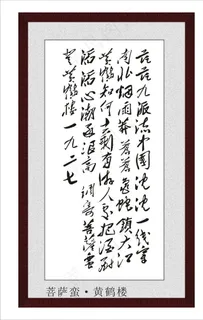 茫茫九派流中國沈沈一线穿
南北烟雨莽苍苍龟蛇鎖大江
黄鹤知何去剩有游人处把酒酹
滔滔心潮逐浪高 调寄菩萨蛮
登黄鹤楼一九二七
菩萨蛮·黄鹤楼